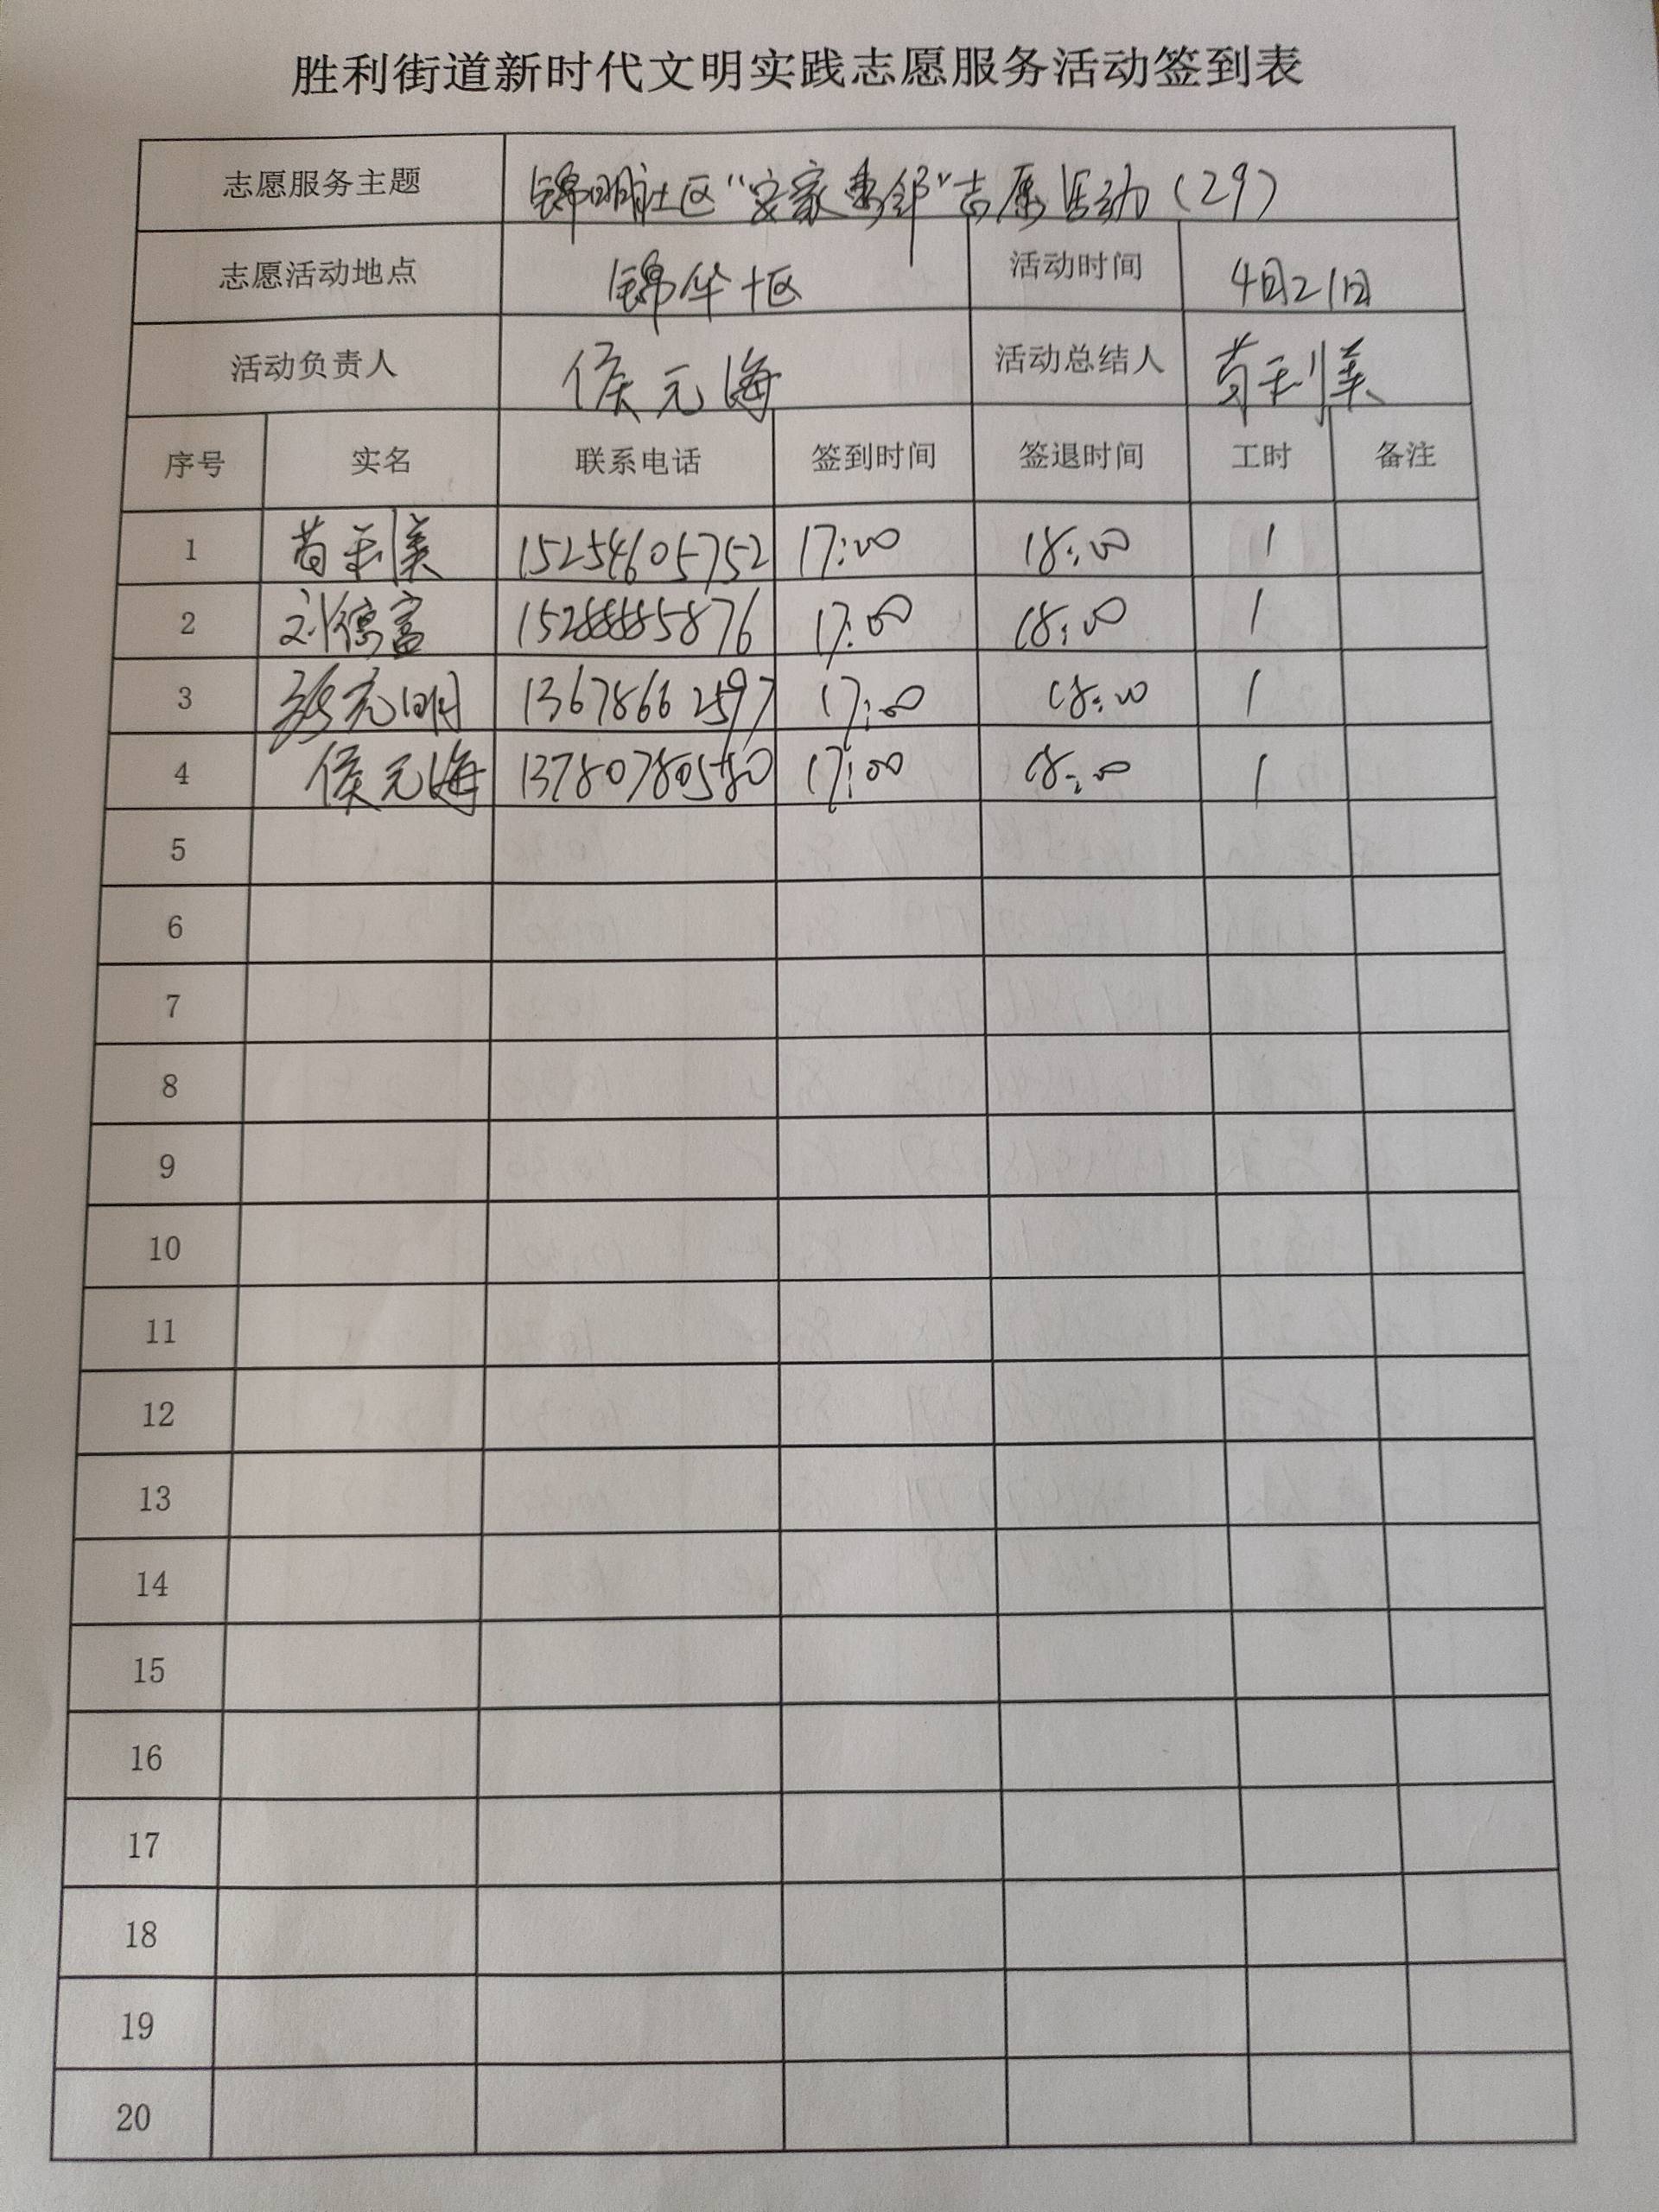 胜利街道新时代文明实践志愿服务活动签到表
志愿服务主题 锦明社区“安家惠邻”志愿活动（29）
志愿活动地点 锦华十区 活动时间 4月21日
活动负责人 侯元海 活动总结人 苟利美
序号 实名 联系电话 签到时间 签退时间 工时 备注
1 15254605752 17:00 18:00 1
2 刘德富 15288885876 17:00 18:00 1
3 13678662597 17:00 18:00 1
4 侯元海 13780780580 17:00 18:00 1
5
6
7
8
9
10
11
12
13
14
15
16
17
18
19
20